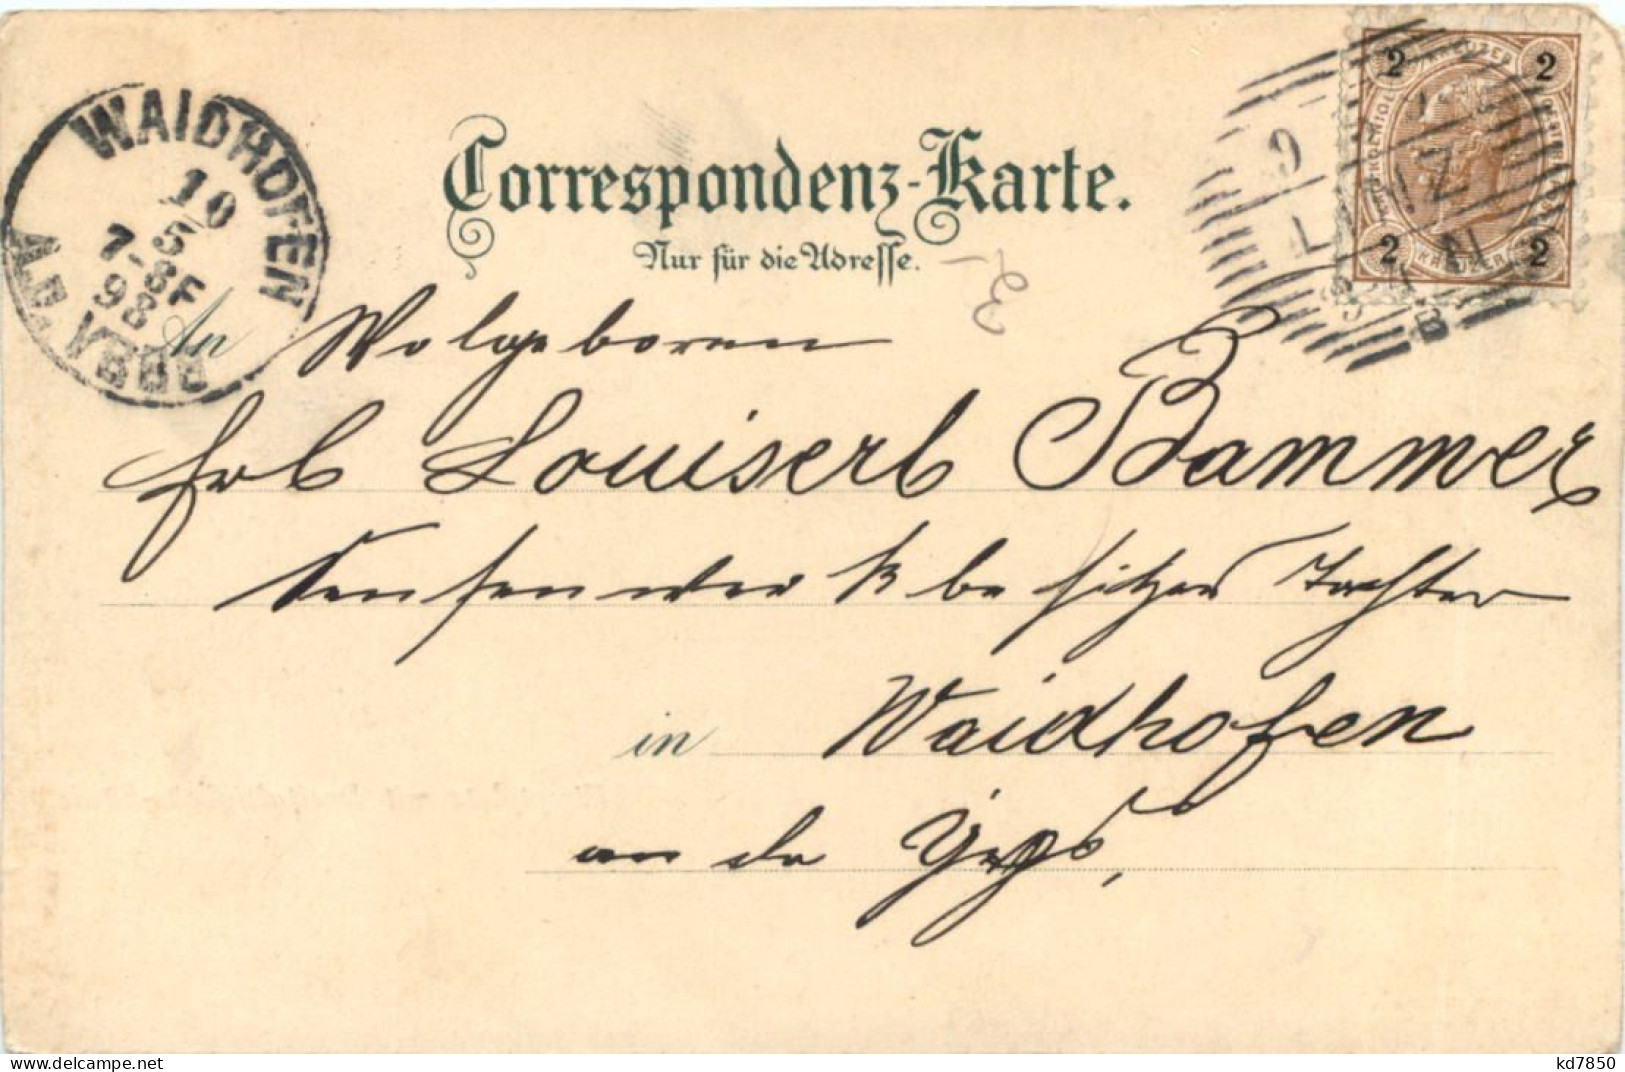 WAIDHOFEN
10
5
7-8F
98
A.D. YBBS
2 KREUZER 2
2 KREUZER 2
Correspondenz-Karte.
Nur für die Adresse.
An Wolgeboren
Frl Louiserl Bammer
Sensenwerkbesitzers Tochter
in Waidhofen
an da Ybbs,
kd7850